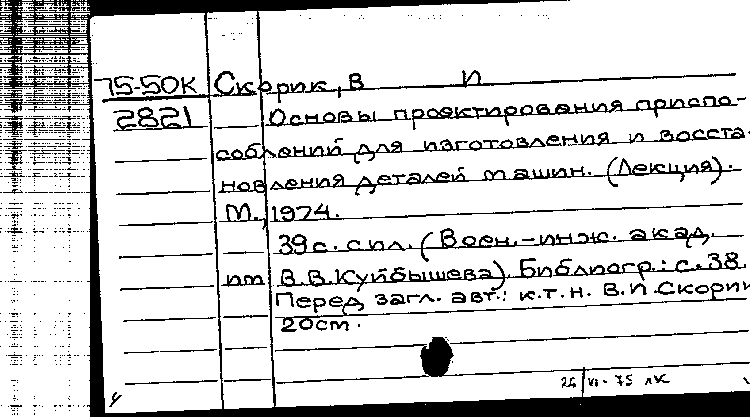 75-50К Скорик, В П
2821 Основы проектирования приспо-
соблений для изготовления и восста-
новления деталей машин. (Лекция).
М., 1974.
39с. с ил. (Воен.-инж. акад.
пт В.В.Куйбышева). Библиогр.: с.38.
Перед загл. авт.: к.т.н. В.П.Скорик
20см.
26/VI-75 лк